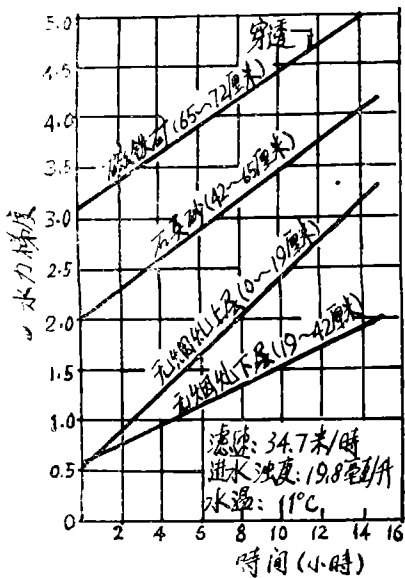 5.0
4.5
4.0
3.5
3.0
2.5
2.0
1.5
1.0
0.5
0
水力梯度
穿透
磁铁矿(65~72厘米)
石英砂(42~65厘米)
无烟煤上层(0~19厘米)
无烟煤下层(19~42厘米)
滤速:34.7米/時
进水浊度:19.8毫克/升
水温:11°C
2 4 6 8 10 12 14 16
時间(小時)